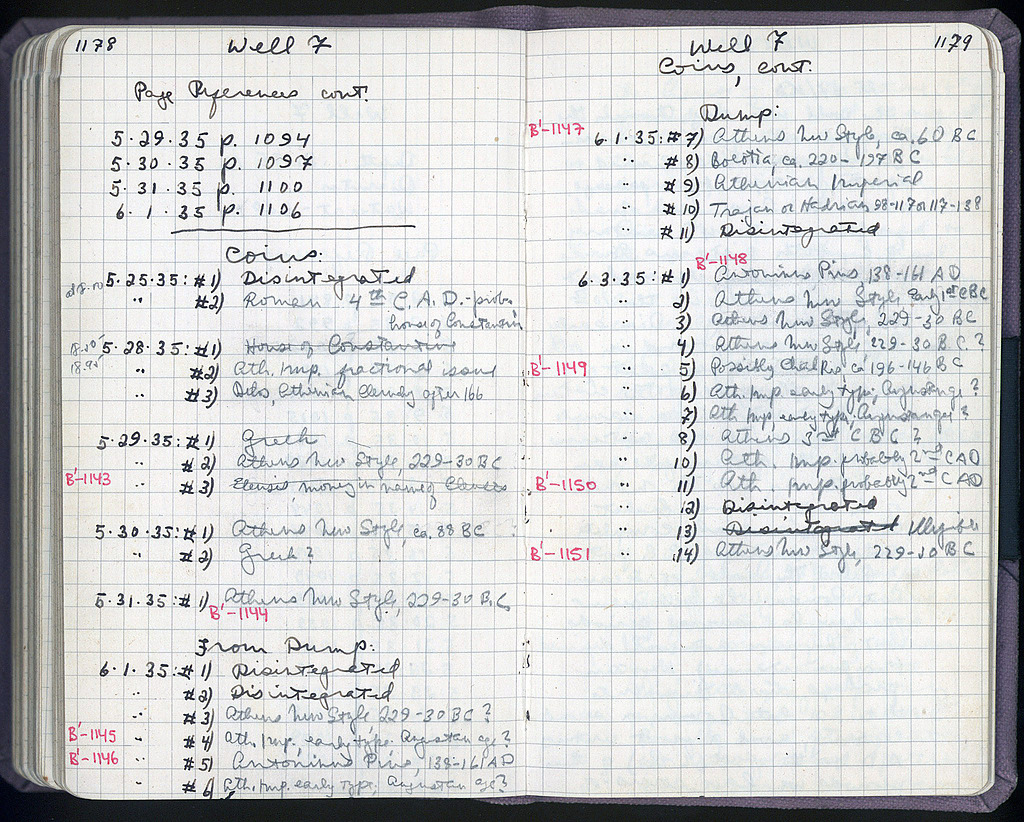 1178
Well 7
Page References cont.
5·29·35 p. 1094
5·30·35 p. 1097
5·31·35 p. 1100
6·1·35 p. 1106
Coins:
5·25·35: #1) Disintegrated
" #2) Roman 4th C. A. D. - prob.
house of Constantine
5·28·35: #1) House of Constantine
" #2) Ath. Imp. fractional issue
" #3) Delos, Athenian Cleruchy after 166
5·29·35: #1) Greek
" #2) Athens New Style, 229-30 BC
B'-1143 " #3) Eleusis, money in name of
5·30·35: #1) Athens New Style, ca. 88 BC
" #2) Greek?
5·31·35: #1) Athens New Style, 229-30 B.C
B'-1144
From Dump:
6·1·35: #1) Disintegrated
" #2) Disintegrated
" #3) Athens New Style 229-30 BC?
B'-1145 " #4) Ath. Imp., early type. Augustan age?
B'-1146 " #5) Antoninus Pius, 138-161 AD
" #6) Ath. Imp. early type, Augustan age?
Well 7
1179
Coins, cont.
Dump:
B'-1147 6·1·35: #7) Athens New Style, ca. 60 BC
" #8) Boeotia, ca. 220-197 BC
" #9) Athenian Imperial
" #10) Trajan or Hadrian 98-117 or 117-138
" #11) Disintegrated
B'-1148
6·3·35: #1) Antoninus Pius, 138-161 AD
" 2) Athens New Style Early 1st C BC
" 3) Athens New Style, 229-30 BC
" 4) Athens New Style 229-30 B.C.?
B'-1149 " 5) Possibly Chalkis ca 196-146 BC
" 6) Ath. Imp. early type, Augustan age?
" 7) Ath Imp, early type, Augustan age?
" 8) Athens 3rd C BC?
" 10) Ath. Imp. probably 2nd C AD
B'-1150 " 11) Ath. Imp. probably 2nd C AD
12) Disintegrated
" 13) Disintegrated Illegible
B'-1151 " 14) Athens New Style, 229-30 BC